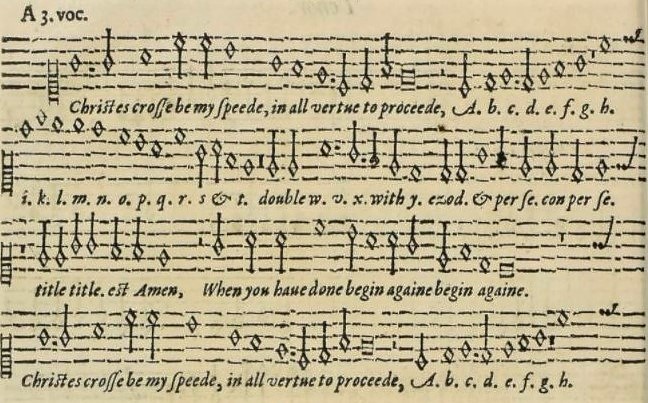 A 3. voc.
Christes crosse be my speede, in all vertue to proceede, A. b. c. d. e. f. g. h.
i. k. l. m. n. o. p. q. r. s & t. double w. v. x. with y. ezod. & per se. con per se.
title title. est Amen, When you haue done begin againe begin againe.
Christes crosse be my speede, in all vertue to proceede, A. b. c. d. e. f. g. h.